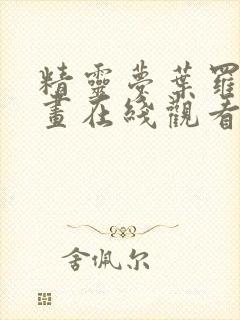 精靈夢葉羅
畫在綫觀看
舍佩尔